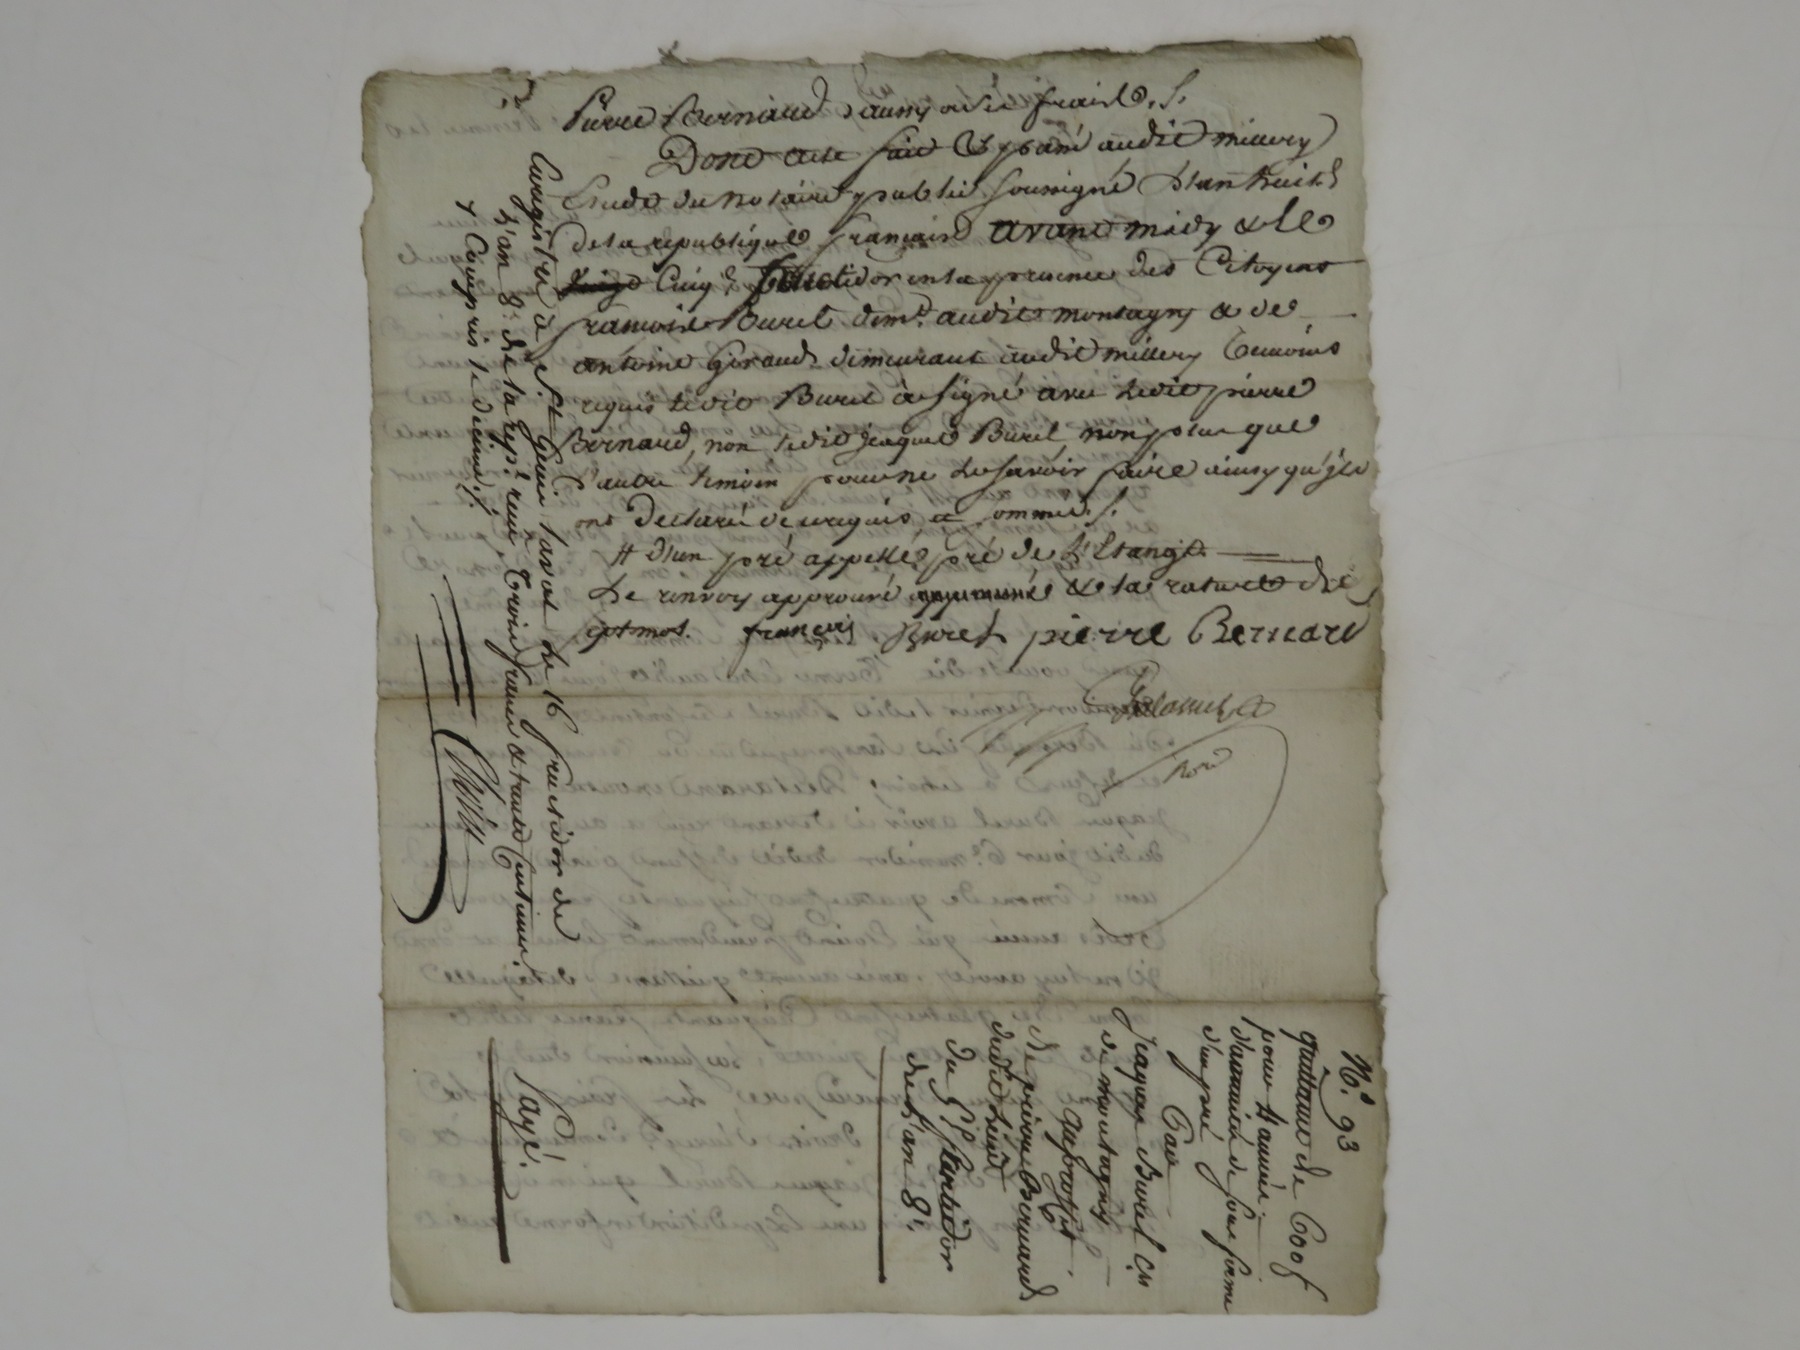 Pierre Bernard aussy à ses frais./.
Dont acte fait & passé audit millery
Etude du notaire public soussigné L'an huit.e
de la republique française avant midy & le
Cinq fructidor en la presence des Citoyens
francois Burel dem.t audit montagny & de
antoine Giraud demeurant audit millery temoins
requis ledit Burel à signé avec ledit pierre
Bernard, non ledit jacques Burel non plus que
l'autre temoin pour ne le savoir faire ainsy qu'ils
ont declaré de ce requis et sommés./.
# d'un pré appellé pré de L'Etang
Le renvoy approuvé & la rature de
sept mots. francois Burel pierre Bernard
not.
Enregistré à St Genis Laval le 16 fructidor de
L'an 8.e de la rep.e reçu trois francs & trente Centimes
Compris le decime./.
N.o 93
quittance de 600 f
pour L'année
d'une ferme
d'un pré
Par
Jacques Burel C.n
de montagny
au profit
de pierre Bernard
dudit Lieu
du 5 fructidor
de L'an 8.e
Payé.